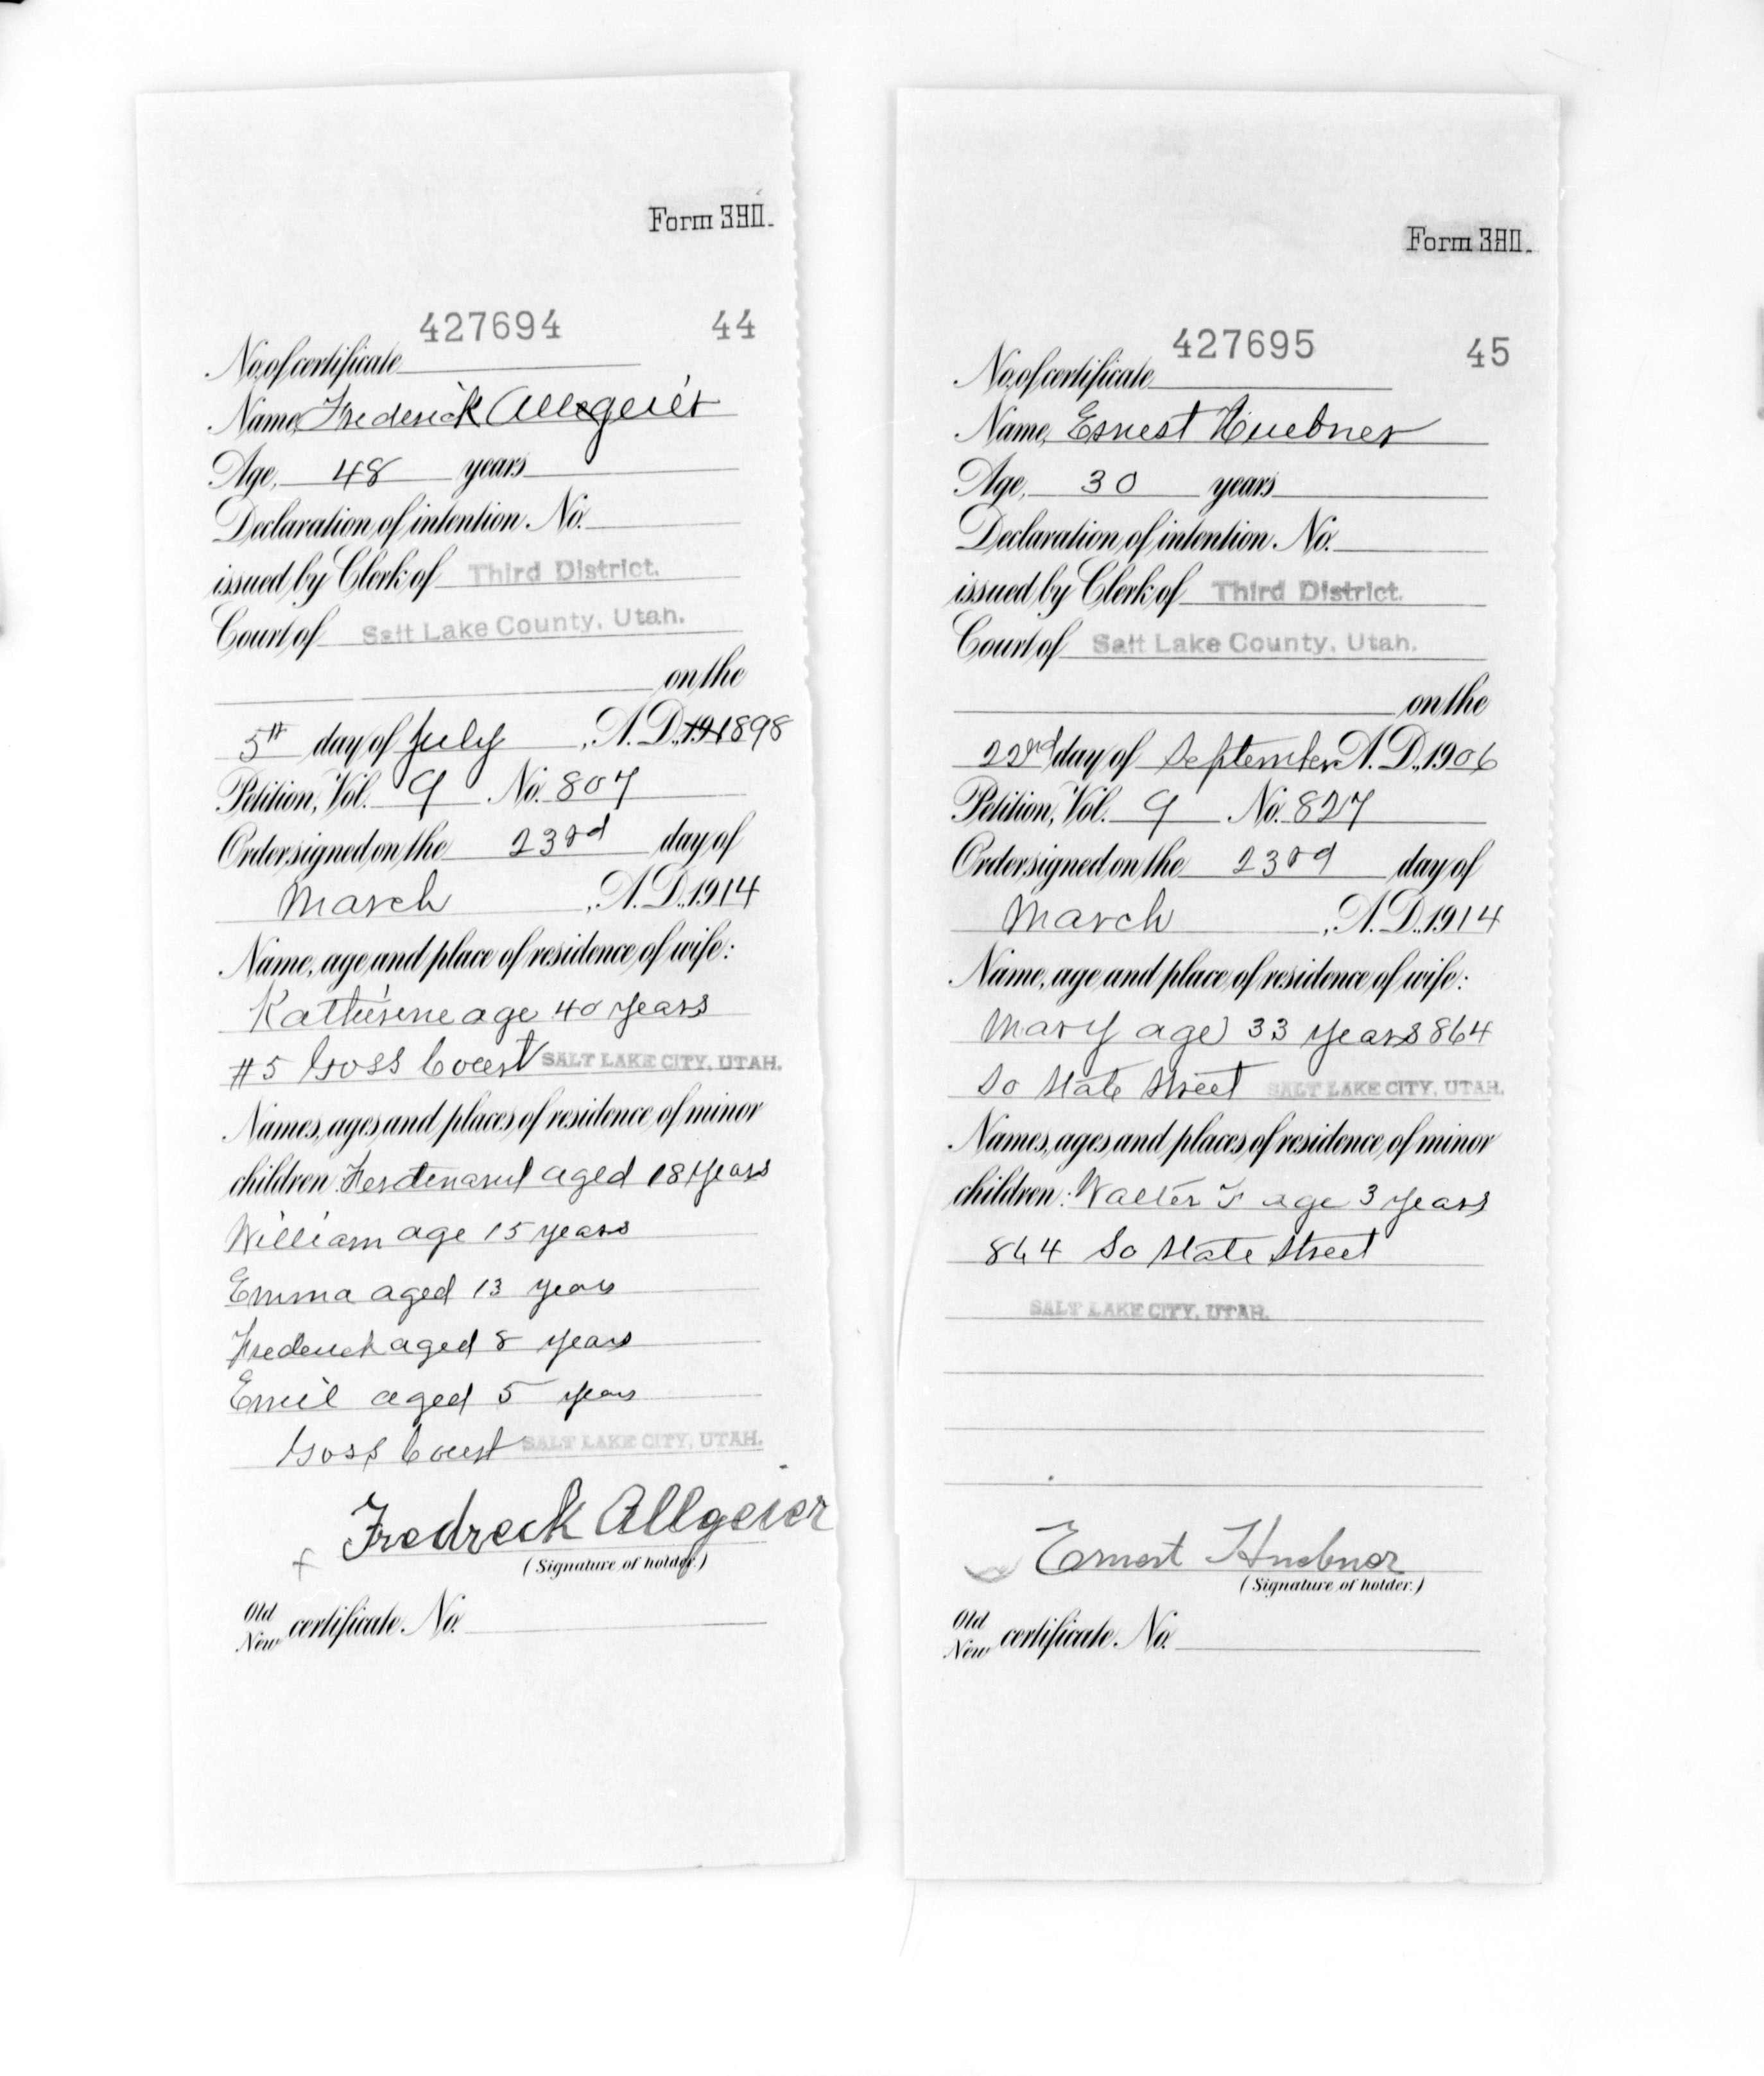 Form 390.
427694 44
No. of certificate
Name, Frederick Allegeier
Age, 48 years
Declaration of intention No.
issued by Clerk of Third District.
Court of Salt Lake County, Utah.
on the
5th day of July, A.D. 191898
Petition, Vol. 9 No. 807
Order signed on the 23rd day of
March, A.D. 1914
Name, age and place of residence of wife:
Katherine age 40 years
#5 Goss Court SALT LAKE CITY, UTAH.
Names, ages and places of residence of minor
children Ferdenand aged 18 years
William age 15 years
Emma aged 13 years
Frederick aged 8 years
Emil aged 5 years
Goss Court SALT LAKE CITY, UTAH.
Fredreck Allgeier
(Signature of holder.)
Old
New certificate No.
Form 390.
427695 45
No. of certificate
Name, Ernest Huebner
Age, 30 years
Declaration of intention No.
issued by Clerk of Third District.
Court of Salt Lake County, Utah.
on the
22nd day of September A.D. 1906
Petition, Vol. 9 No. 827
Order signed on the 23rd day of
March, A.D. 1914
Name, age and place of residence of wife:
Mary age 33 years 864
So State Street SALT LAKE CITY, UTAH.
Names, ages and places of residence of minor
children: Walter F age 3 years
864 So State Street
SALT LAKE CITY, UTAH.
Ernest Huebner
(Signature of holder.)
Old
New certificate No.